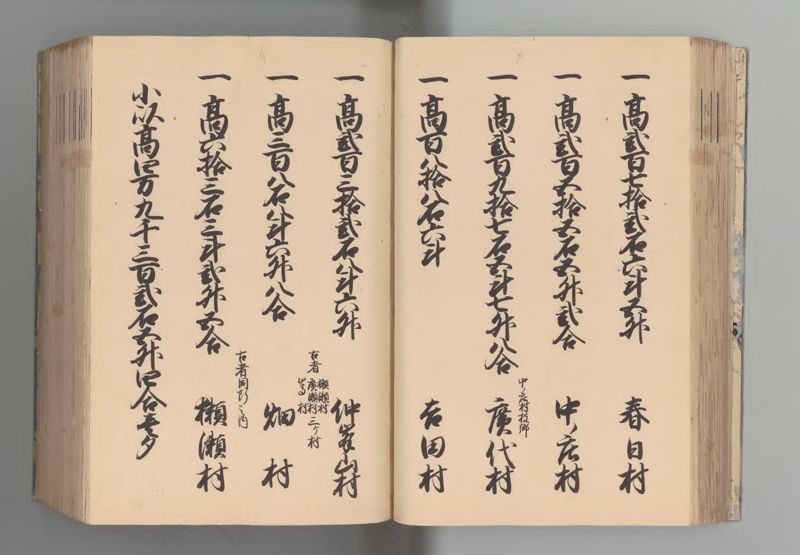 一 高貳百七拾貳石六斗五升 春日村
一 高貳百五拾五石五升貳合 中ノ庄村
一 高貳百九拾七石五斗七升八合 廣代村
中ノ庄村枝郷
一 高百八拾八石六斗 吉田村
一 高貳百三拾貳石八斗六升 仲峯山村
古者 獺瀬村 廣瀬村 嵩村 三ヶ村
一 高三百八石八斗六升八合 畑村
一 高六拾三石三斗貳升五合 獺瀬村
古者同断之内
小以高四万九千三百貳石五升四合壱夕